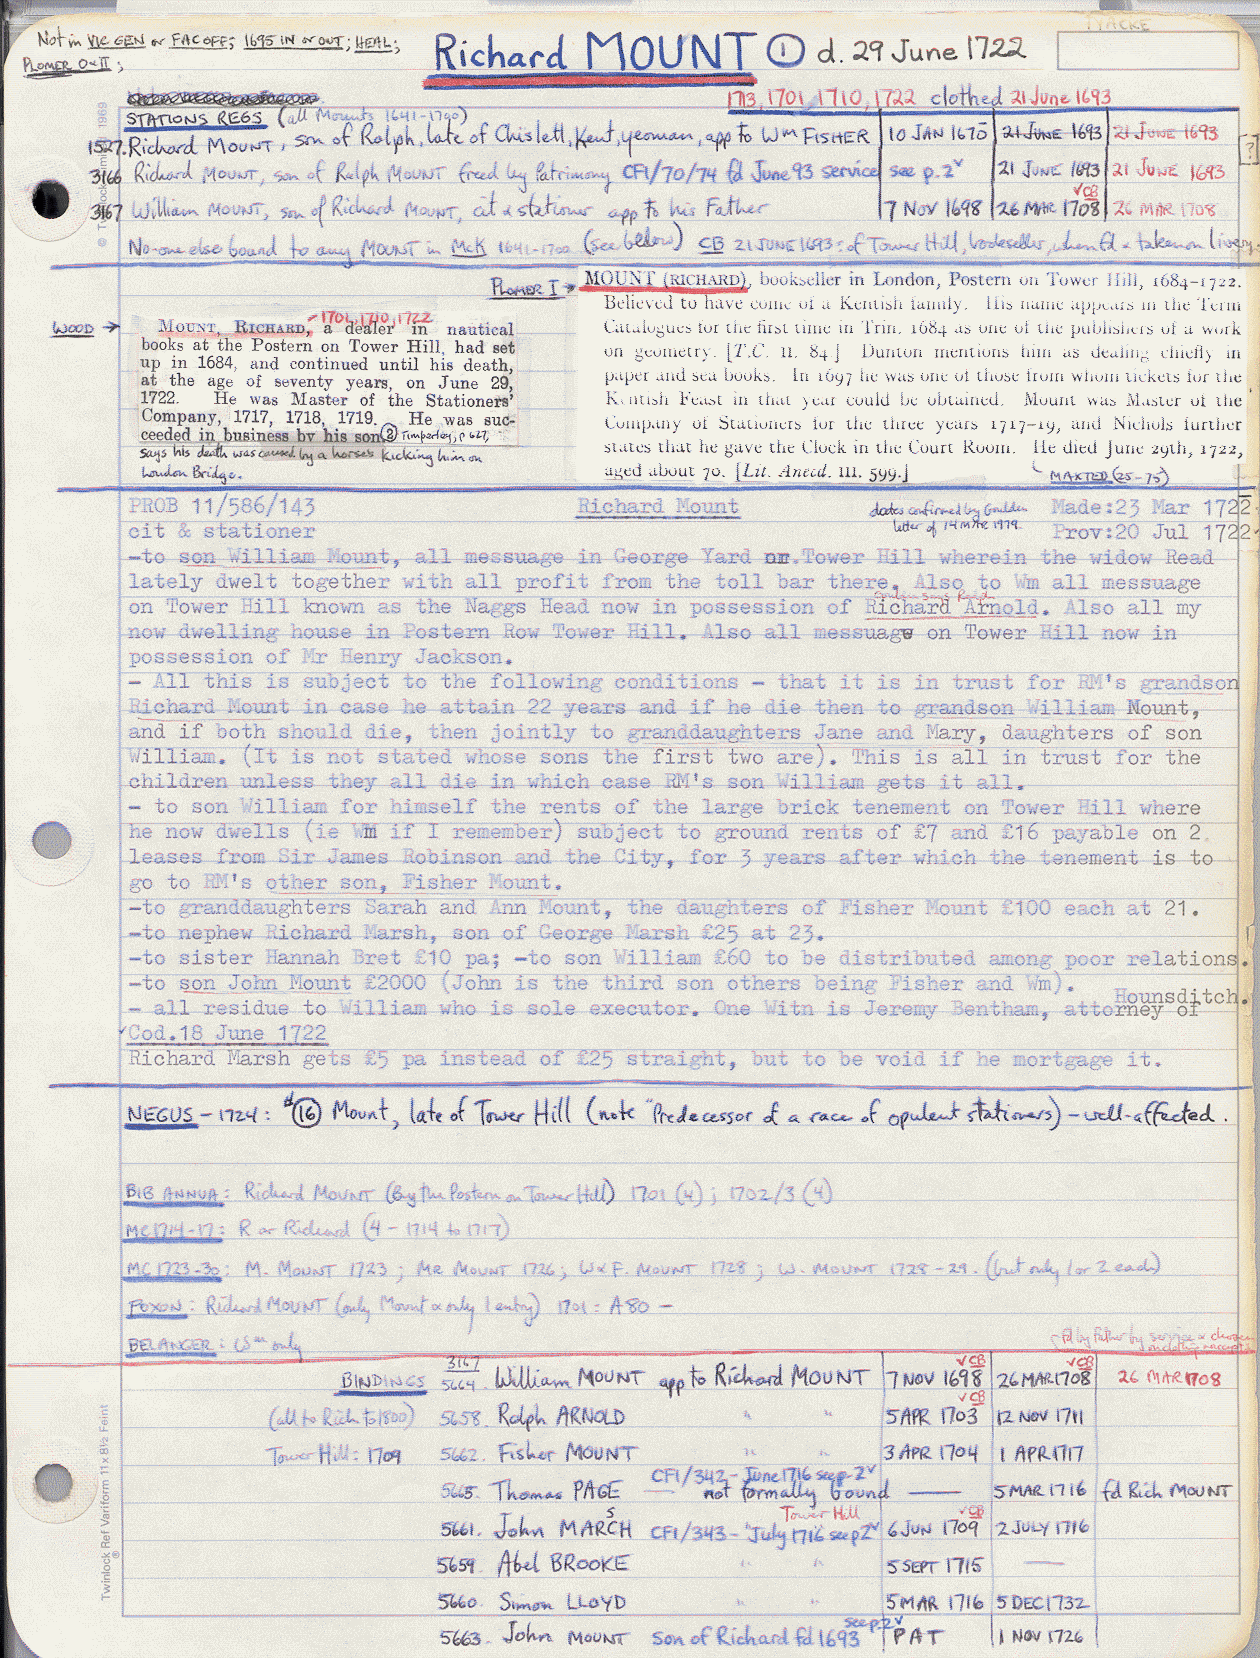 Not in VIC GEN or FAC OFF; 1695 IN or OUT; HEAL;
PLOMER O & II;
Richard MOUNT ① d. 29 June 1722
TYACKE
1713, 1701, 1710, 1722 clothed 21 June 1693
STATIONS REGS (all Mounts 1641-1700)
1527. Richard MOUNT, son of Ralph, late of Chislett, Kent, yeoman, app to Wm FISHER 10 JAN 1670 21 JUNE 1693 21 JUNE 1693
[?]
3166 Richard MOUNT, son of Ralph MOUNT freed by Patrimony CF1/70/74 fd June 93 service see p.2 21 JUNE 1693 21 JUNE 1693
VCB
3167 William MOUNT, son of Richard MOUNT, cit & stationer app to his Father 7 NOV 1698 26 MAR 1708 26 MAR 1708
No-one else bound to any MOUNT in McK 1641-1700 (see below) CB 21 JUNE 1693: of Tower Hill, bookseller, when fd & taken on livery
PLOMER I → MOUNT (RICHARD), bookseller in London, Postern on Tower Hill, 1684-1722.
Believed to have come of a Kentish family. His name appears in the Term
Catalogues for the first time in Trin. 1684 as one of the publishers of a work
on geometry. [T.C. II. 84] Dunton mentions him as dealing chiefly in
paper and sea books. In 1697 he was one of those from whom tickets for the
Kentish Feast in that year could be obtained. Mount was Master of the
Company of Stationers for the three years 1717-19, and Nichols further
states that he gave the Clock in the Court Room. He died June 29th, 1722,
aged about 70. [Lit. Anecd. III. 599.]
MAXTED (25-75)
1701, 1710, 1722
WOOD → MOUNT, RICHARD, a dealer in nautical
books at the Postern on Tower Hill, had set
up in 1684, and continued until his death,
at the age of seventy years, on June 29,
1722. He was Master of the Stationers'
Company, 1717, 1718, 1719. He was suc-
ceeded in business by his son ② Timperley, p 627,
says his death was caused by a horse's kicking him on
London Bridge.
PROB 11/586/143 Richard Mount dates confirmed by Goulden Made:23 Mar 1722
letter of 14 Mar 1979.
cit & stationer Prov:20 Jul 1722
-to son William Mount, all messuage in George Yard on.Tower Hill wherein the widow Read
lately dwelt together with all profit from the toll bar there. Also to Wm all messuage
on Tower Hill known as the Naggs Head now in possession of Richard Arnold. Also all my
now dwelling house in Postern Row Tower Hill. Also all messuage on Tower Hill now in
possession of Mr Henry Jackson.
- All this is subject to the following conditions - that it is in trust for RM's grandson
Richard Mount in case he attain 22 years and if he die then to grandson William Mount,
and if both should die, then jointly to granddaughters Jane and Mary, daughters of son
William. (It is not stated whose sons the first two are). This is all in trust for the
children unless they all die in which case RM's son William gets it all.
- to son William for himself the rents of the large brick tenement on Tower Hill where
he now dwells (ie Wm if I remember) subject to ground rents of £7 and £16 payable on 2
leases from Sir James Robinson and the City, for 3 years after which the tenement is to
go to RM's other son, Fisher Mount.
-to granddaughters Sarah and Ann Mount, the daughters of Fisher Mount £100 each at 21.
-to nephew Richard Marsh, son of George Marsh £25 at 23.
-to sister Hannah Bret £10 pa; -to son William £60 to be distributed among poor relations.
-to son John Mount £2000 (John is the third son others being Fisher and Wm).
- all residue to William who is sole executor. One Witn is Jeremy Bentham, attorney of Hounsditch.
Cod.18 June 1722
Richard Marsh gets £5 pa instead of £25 straight, but to be void if he mortgage it.
NEGUS - 1724: "⑯ Mount, late of Tower Hill (note "Predecessor of a race of opulent stationers) - well-affected.
BIB ANNUA: Richard MOUNT (By the Postern on Tower Hill) 1701 (4); 1702/3 (4)
MC1714-17: R or Richard (4 - 1714 to 1717)
MC 1723-30: M. MOUNT 1723; MR MOUNT 1726; W & F. MOUNT 1728; W. MOUNT 1728-29. (but only 1 or 2 each)
FOXON: Richard MOUNT (only Mount & only 1 entry) 1701: A80 -
BELANGER: Wm only
3167 VCB VCB
BINDINGS 5664. William MOUNT app to Richard MOUNT 7 NOV 1698 26 MAR 1708 26 MAR 1708
VCB
(all to Rich to 1800) 5658. Ralph ARNOLD " " 5 APR 1703 12 NOV 1711
Tower Hill: 1709 5662. Fisher MOUNT " " 3 APR 1704 1 APR 1717
CF1/342 - June 1716 see p-2
5665. Thomas PAGE — not formally bound — 5 MAR 1716 fd Rich MOUNT
S Tower Hill VCB
5661. John MARCH CF1/343 - "July 1716" see p2 6 JUN 1709 2 JULY 1716
5659. Abel BROOKE " " 5 SEPT 1715 —
5660. Simon LLOYD " " 5 MAR 1716 5 DEC 1732
5663. John MOUNT son of Richard fd 1693 see p 2 PAT 1 NOV 1726
Twinlock Ref Variform 11 x 8½ Feint